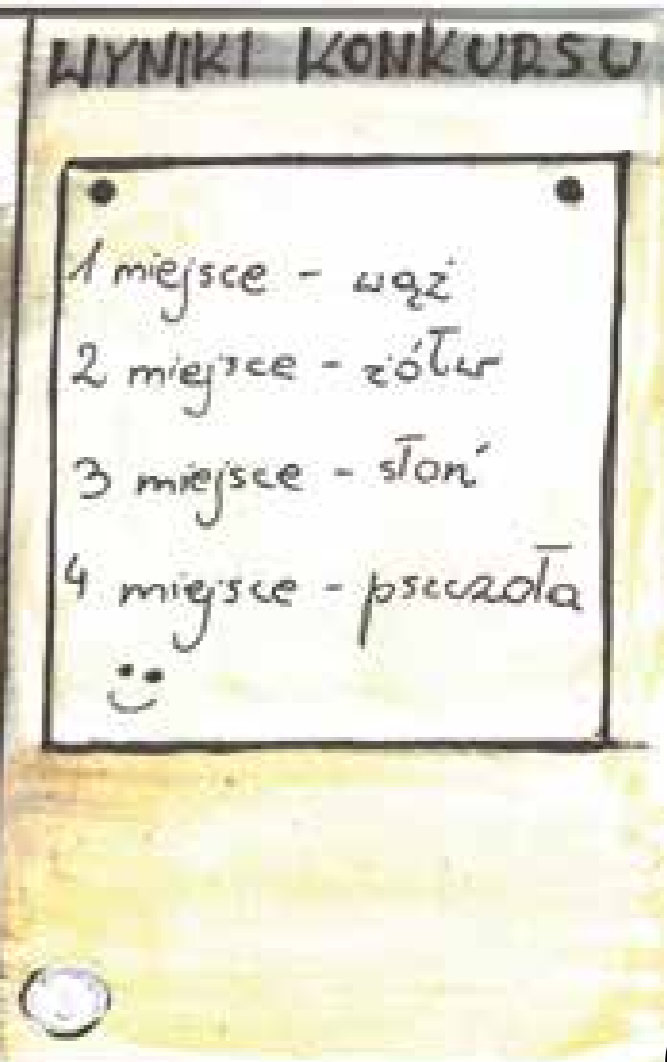 WYNIKI KONKURSU
1 miejsce - wąż
2 miejsce - żółw
3 miejsce - słoń
4 miejsce - pszczoła